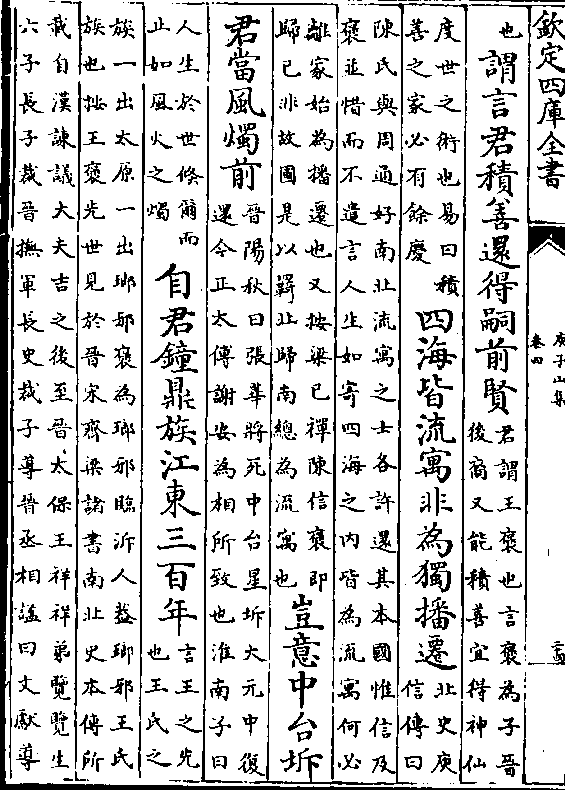 欽定四庫全書
庾子山集
卷四
也
謂言君積善還得嗣前賢
君謂王褒也言褒為子晉
後裔又能積善宜得神仙
度世之術也易曰積
善之家必有餘慶
四海皆流寓非為獨播遷
北史庾
信傳曰
陳氏與周通好南北流寓之士各許還其本國惟信及
褒並惜而不遣言人生如寄四海之内皆為流寓何必
離家始為播遷也又按梁已禪陳信褒即
歸已非故國是以羈北歸南總為流寓也
豈意中台坼
君當風燭前
晉陽秋曰張華將死中台星坼大元中復
還令正太傅謝安為相所致也淮南子曰
人生於世倐爾而
止如風火之燭
自君鐘鼎族江東三百年
言王之先
也王氏之
族一出太原一出瑯邪褒為瑯邪臨沂人益瑯邪王氏
族也按王褒先世見於晉宋齊梁諸書南北史本傳所
載自漢諫議大夫吉之後至晉太保王祥祥弟覽覽生
六子長子裁晉撫軍長史裁子導晉丞相諡曰文獻導